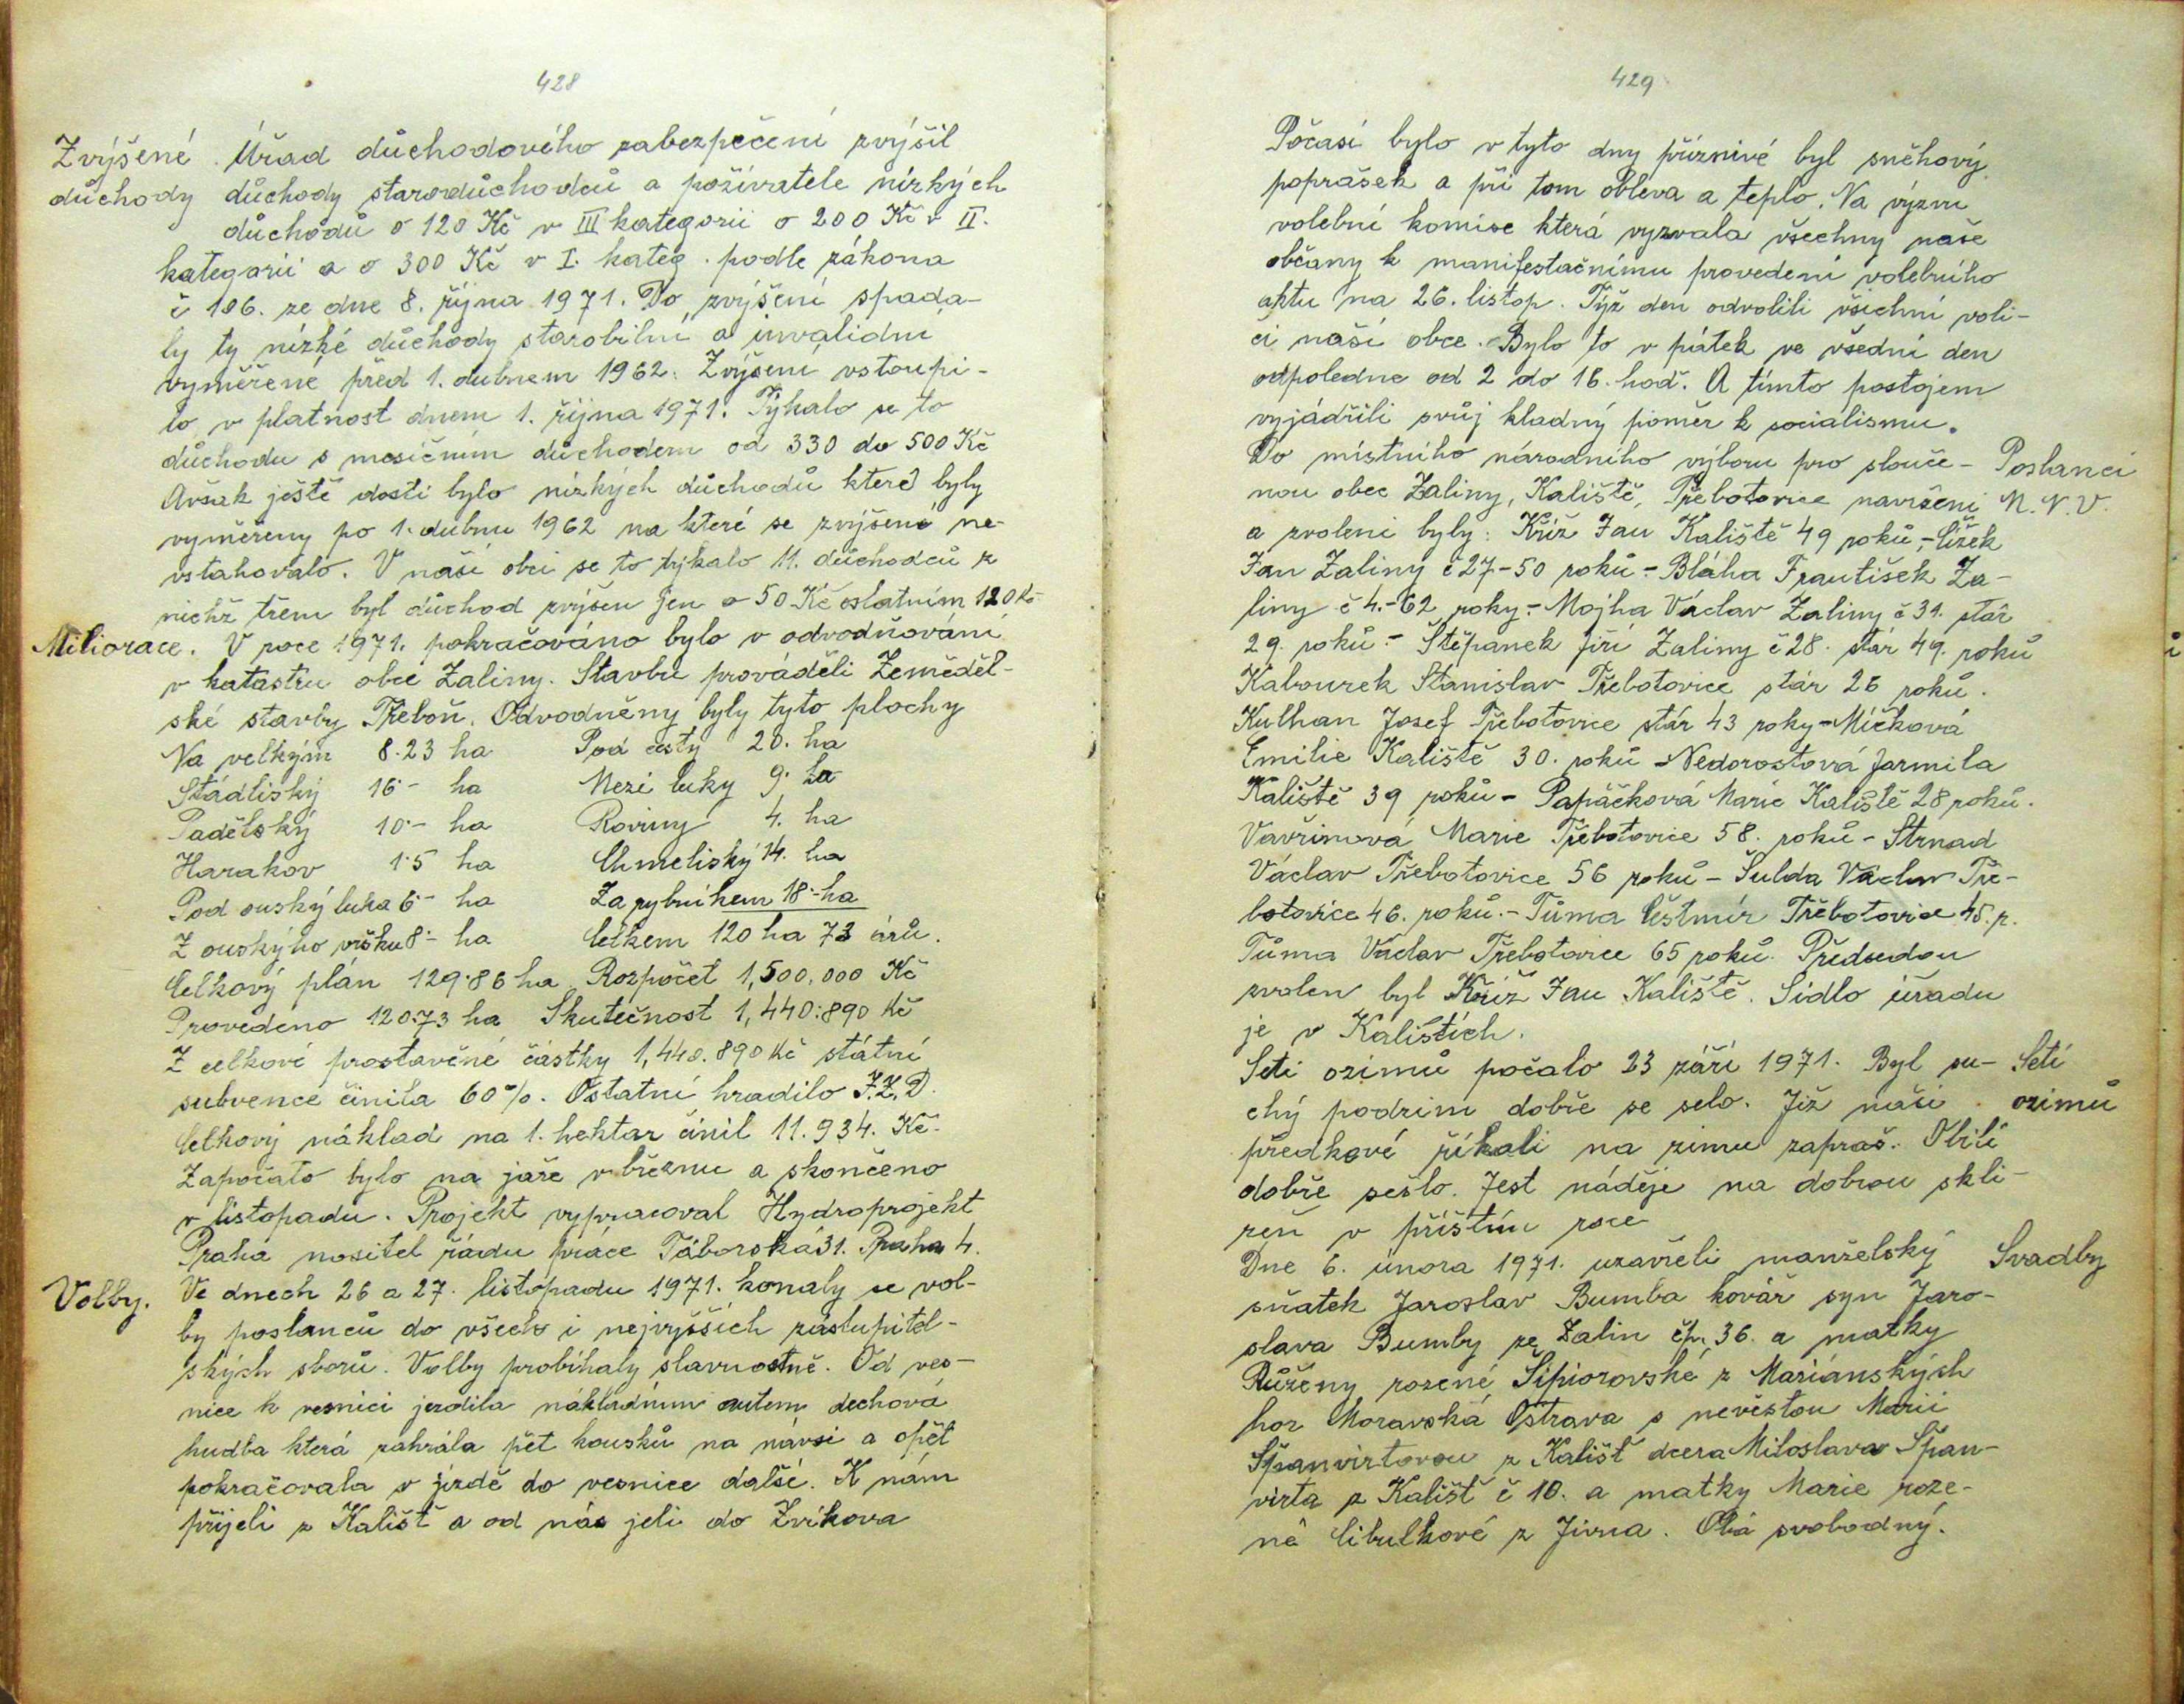 428
Zvýšené Úřad důchodového zabezpečení zvýšil
důchody důchody starodůchodců a poživatele nízkých
důchodů o 120 Kč v III kategorii o 200 Kč v II.
kategorii a o 300 Kč v I. kateg. podle zákona
č 106. ze dne 8. října 1971. Do zvýšení spada-
ly ty nízké důchody starobilní a invalidní
vyměřené před 1. dubnem 1962. Zvýšení vstoupi-
lo v platnost dnem 1. října 1971. Týkalo se to
důchodu s mesíčním důchodem od 330 do 500 Kč
Avšak ještě dosti bylo nízkých důchodů které byly
vyměřeny po 1. dubnu 1962 na které se zvýšení ne-
vstahovalo. V naší obci se to týkalo 11. důchodců z
nichž třem byl důchod zvýšen jen o 50 Kč oslatním 120 Kč
Miliorace. V roce 1971. pokračováno bylo v odvodňování
v katastru obce Zaliny. Stavbu prováděli Zeměděl-
ské stavby Třeboň. Odvodněny byly tyto plochy
Na velkým 8.23 ha Pod cesty 20. ha
Stádliský 16.- ha Mezi luky 9. ha
Padělský 10.- ha Roviny 4. ha
Harakov 1.5 ha Chmeliský 14. ha
Pod ouský luka 6.- ha Za rybníkem 18.- ha
Z ouskýho vršku 8.- ha Celkem 120 ha 73 árů.
Celkový plán 129.86 ha Rozpočet 1,500.000 Kč
Provedeno 120.73 ha Skutečnost 1,440.890 Kč
Z celkové prostavěné částky 1,440.890 Kč státní
subvence činila 60%. Ostatní hradilo J.Z.D.
Celkový náklad na 1. hektar činil 11.934. Kč.
Započato bylo na jaře v březnu a skončeno
v listopadu. Projekt vypracoval Hydroprojekt
Praha nositel řádu práce Táborská 31. Praha 4.
Volby. Ve dnech 26 a 27. listopadu 1971. konaly se vol-
by poslanců do všech i nejvyšších zástupitel-
ských sborů. Volby probíhaly slavnostně. Od ves-
nice k vesnici jezdila nákladním autem dechová
hudba která zahrála pět kousků na návsi a opět
pokračovala v jízdě do vesnice další. K nám
přijeli z Kališť a od nás jeli do Zvíkova
429
Počasí bylo v tyto dny příznivé byl sněhový
poprašek a při tom obleva a teplo. Na výzvu
volební komise která vyzvala všechny naše
občany k manifestačnímu provedení volebního
aktu na 26. listop. Týž den odvolili všichní voli-
či naší obce. Bylo to v pátek ve všední den
odpoledne od 2 do 16. hod. A tímto postojem
vyjádřili svůj kladný poměr k socialismu.
Do místního národního výboru pro slouče- Poslanci
nou obec Zaliny, Kaliště, Třebotovice navrženi M.N.V.
a zvoleni byly: Kříž Jan Kaliště 49 roků,- Čížek
Jan Zaliny č 27-50 roků - Bláha František Za-
liny č 4.-62 roky - Mojha Václav Zaliny č 31. stár
29. roků - Štěpanek Jiří Zaliny č 28. stár 49. roků
Kabourek Stanislav Třebotovice stár 26 roků.
Kulhan Josef Třebotovice stár 43 roky - Míčková
Emilie Kaliště 30. roků - Nedorostová Jarmila
Kaliště 39 roků - Papáčková Marie Kaliště 28 roků.
Vavřinová Marie Třebotovice 58. roků - Strnad
Václav Třebotovice 56 roků - Šulda Václav Tře-
botovice 46. roků. - Tůma Čestmír Třebotovice 45. r.
Tůma Václav Třebotovice 65 roků. Předsedou
zvolen byl Kříž Jan Kaliště. Sídlo úřadu
je v Kalištích.
Setí ozimů počalo 23 září 1971. Byl su- Setí
chý podzim dobře se selo. Již naši ozimů
předkové říkali na zimu zapraš. Obilí
dobře sešlo. Jest náděje na dobrou skli-
zeň v příštím roce
Dne 6. února 1971. uzavřeli manželský Svadby
sňatek Jaroslav Bumba kovář syn Jaro-
slava Bumby ze Zalin čp. 36. a matky
Růženy rozené Šipiorovské z Mariánských
hor Moravská Ostrava s nevěstou Marii
Španvirtovou z Kališť dcera Miloslava Špan-
virta z Kališť č 10. a matky Marie roze-
né Cibulkové z Jivna. Obá svobodný.